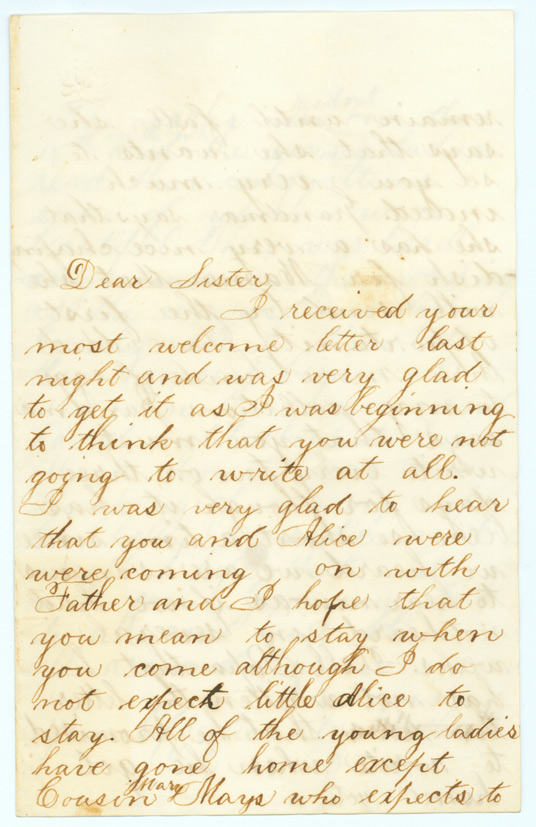 Dear Sister
I received your
most welcome letter last
night and was very glad
to get it as I was beginning
to think that you were not
going to write at all.
I was very glad to hear
that you and Alice were
were coming on with
Father and I hope that
you mean to stay when
you come although I do
not expect little Alice to
stay. All of the young ladies
have gone home except
Cousin Mary Mays who expects to